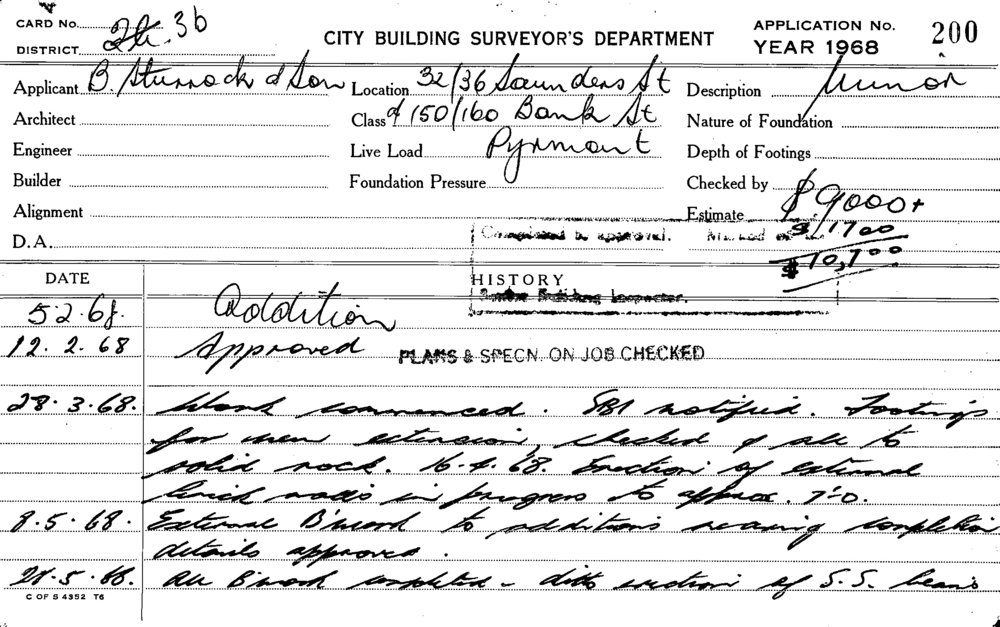 CARD No. 2k. 3b
DISTRICT
CITY BUILDING SURVEYOR'S DEPARTMENT
APPLICATION No. 200
YEAR 1968
Applicant B. Sturrock & Son Location 32/36 Saunders St Description Minor
Architect Class & 150/160 Bank St Nature of Foundation
Engineer Live Load Pyrmont Depth of Footings
Builder Foundation Pressure Checked by
Alignment Estimate $9000+
D.A. Completed to approval. Marked off $ 1700
$ 10,700
DATE HISTORY
Senior Building Inspector.
5.2.68. Addition
12.2.68 Approved PLANS & SPECN. ON JOB CHECKED
28.3.68. Work commenced. SBI notified. Footings
for new extension, checked & all to
solid rock. 16.4.68. Erection of external
brick walls in progress to approx. 7'-0.
8.5.68. External B'work to additions nearing completion
details approved.
28.5.68. All B'work completed - ditto erection of S.S. beams
C OF S 4352 T6